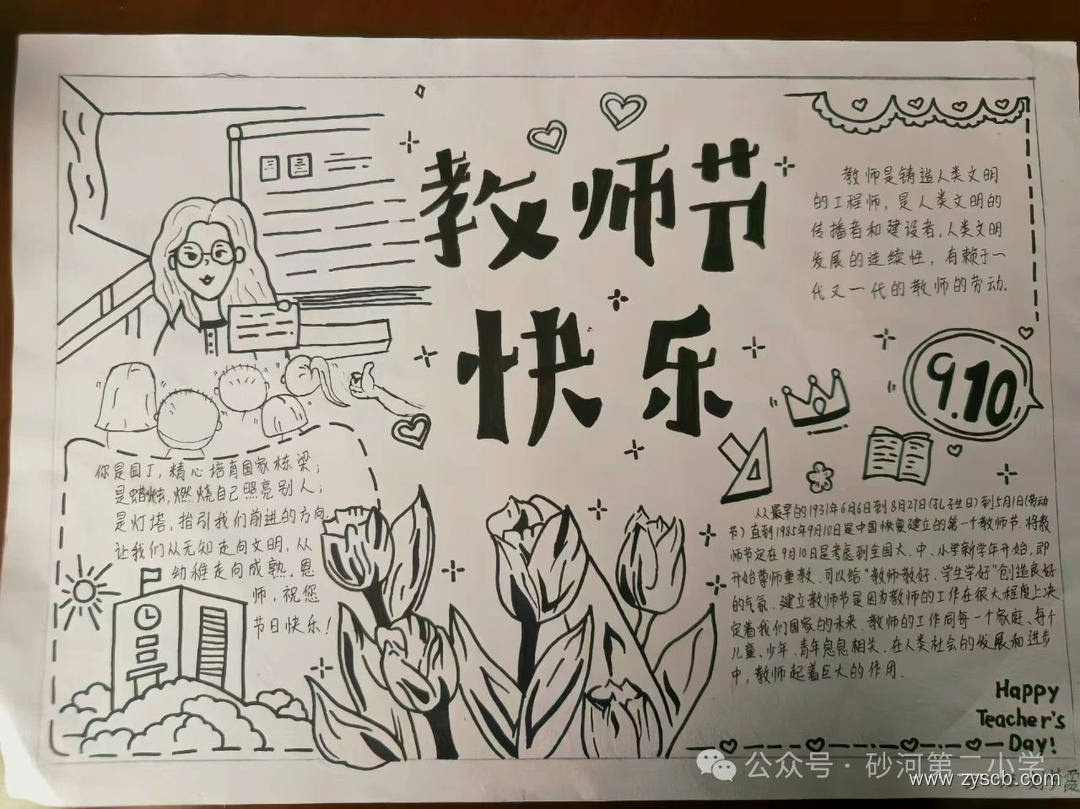 教师节
快乐
教师是铸造人类文明
的工程师，是人类文明的
传播者和建设者，人类文明
发展的连续性，有赖于一
代又一代的教师的劳动.
9.10
你是园丁，精心培育国家栋梁；
是蜡烛，燃烧自己照亮别人；
是灯塔，指引我们前进的方向.
让我们从无知走向文明，从
幼稚走向成熟。恩
师，祝您
节日快乐！
从最早的1931年6月6日到8月27日(孔子生日)到5月1日(劳动
节)直到1985年9月10日是中国恢复建立的第一个教师节.将教
师节定在9月10日是考虑到全国大、中、小学新学年开始，即
开始尊师重教.可以给"教师教好、学生学好"创造良好
的气氛.建立教师节是因为教师的工作在很大程度上决
定着我们国家的未来.教师的工作同每一个家庭、每个
儿童、少年、青年息息相关.在人类社会的发展和进步
中，教师起着巨大的作用.
Happy
Teacher's
Day!
公众号·砂河第二小学
www.zyscb.com